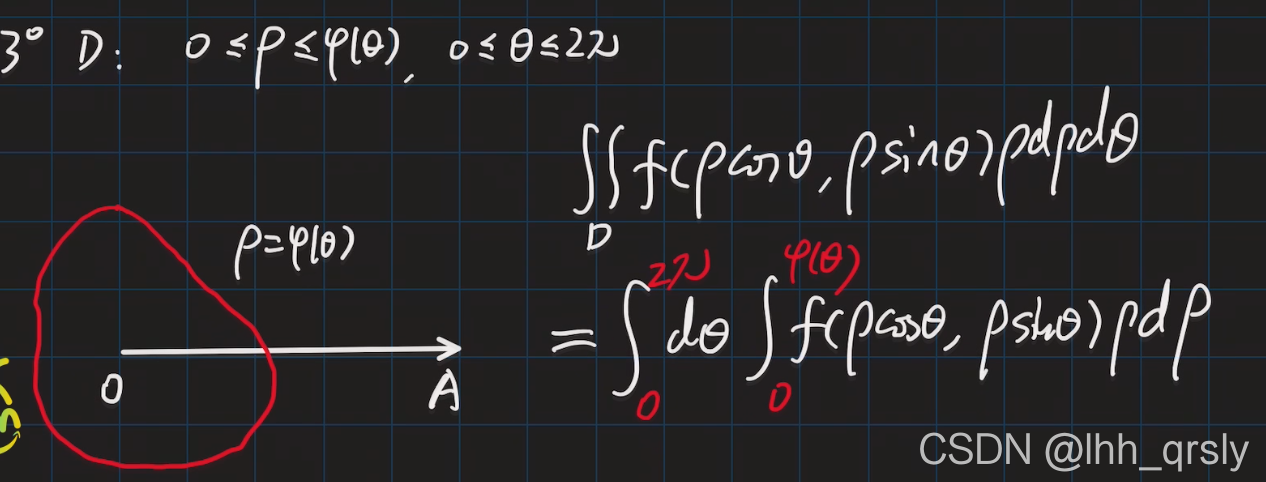 3° D: 0 ≤ ρ ≤ φ(θ), 0 ≤ θ ≤ 2π
∬_D f(ρcosθ, ρsinθ)ρdρdθ
ρ=φ(θ)
= ∫_0^{2π} dθ ∫_0^{φ(θ)} f(ρcosθ, ρsinθ)ρdρ
O A
CSDN @lhh_qrsly